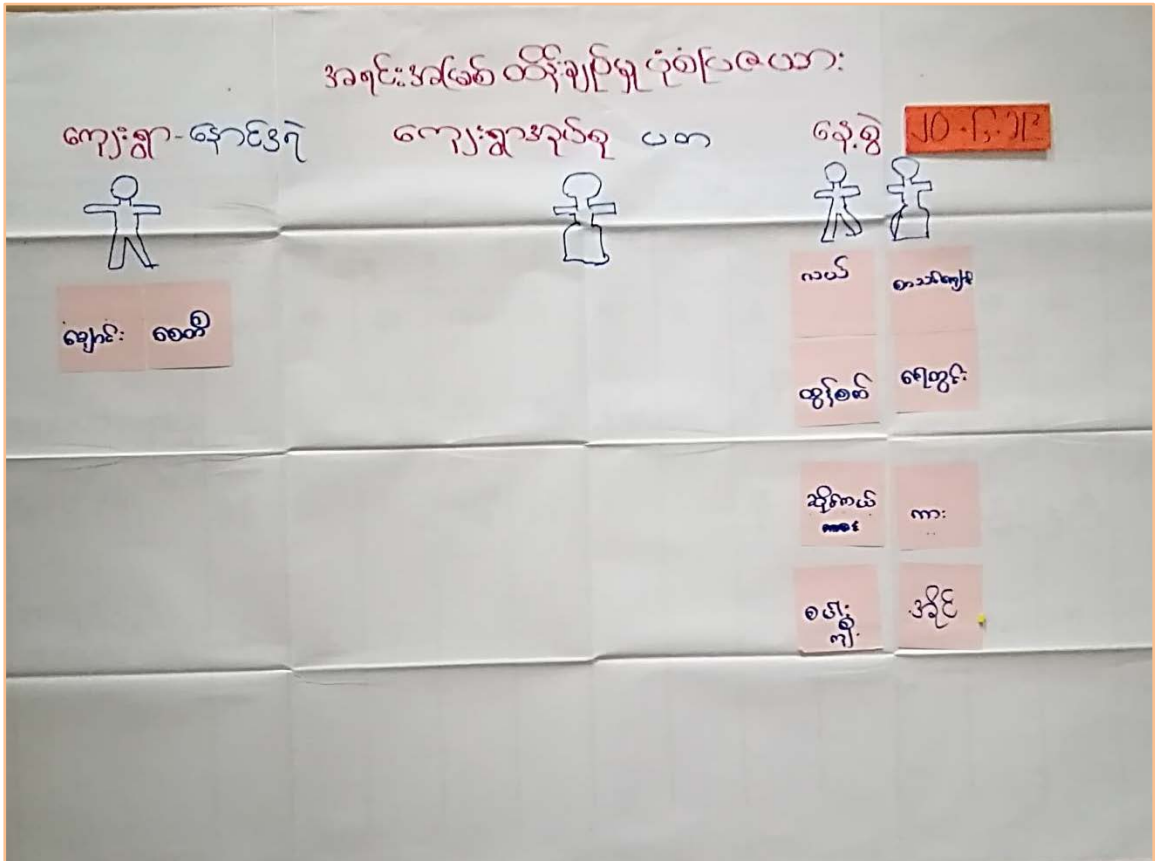 အရင်းအမြစ် ထိန်းချုပ်မှု ပုံစံပြဇယား
ကျေးရွာ-နောင်ဒရဲ ကျေးရွာအုပ်စု ပတာ နေ့စွဲ
ချောင်း စေတီ
လယ် စာသင်ကျောင်း
ထွန်စက် ရေတွင်း
ဆိုင်ကယ် ကား
စပါးကျီ အိုင်